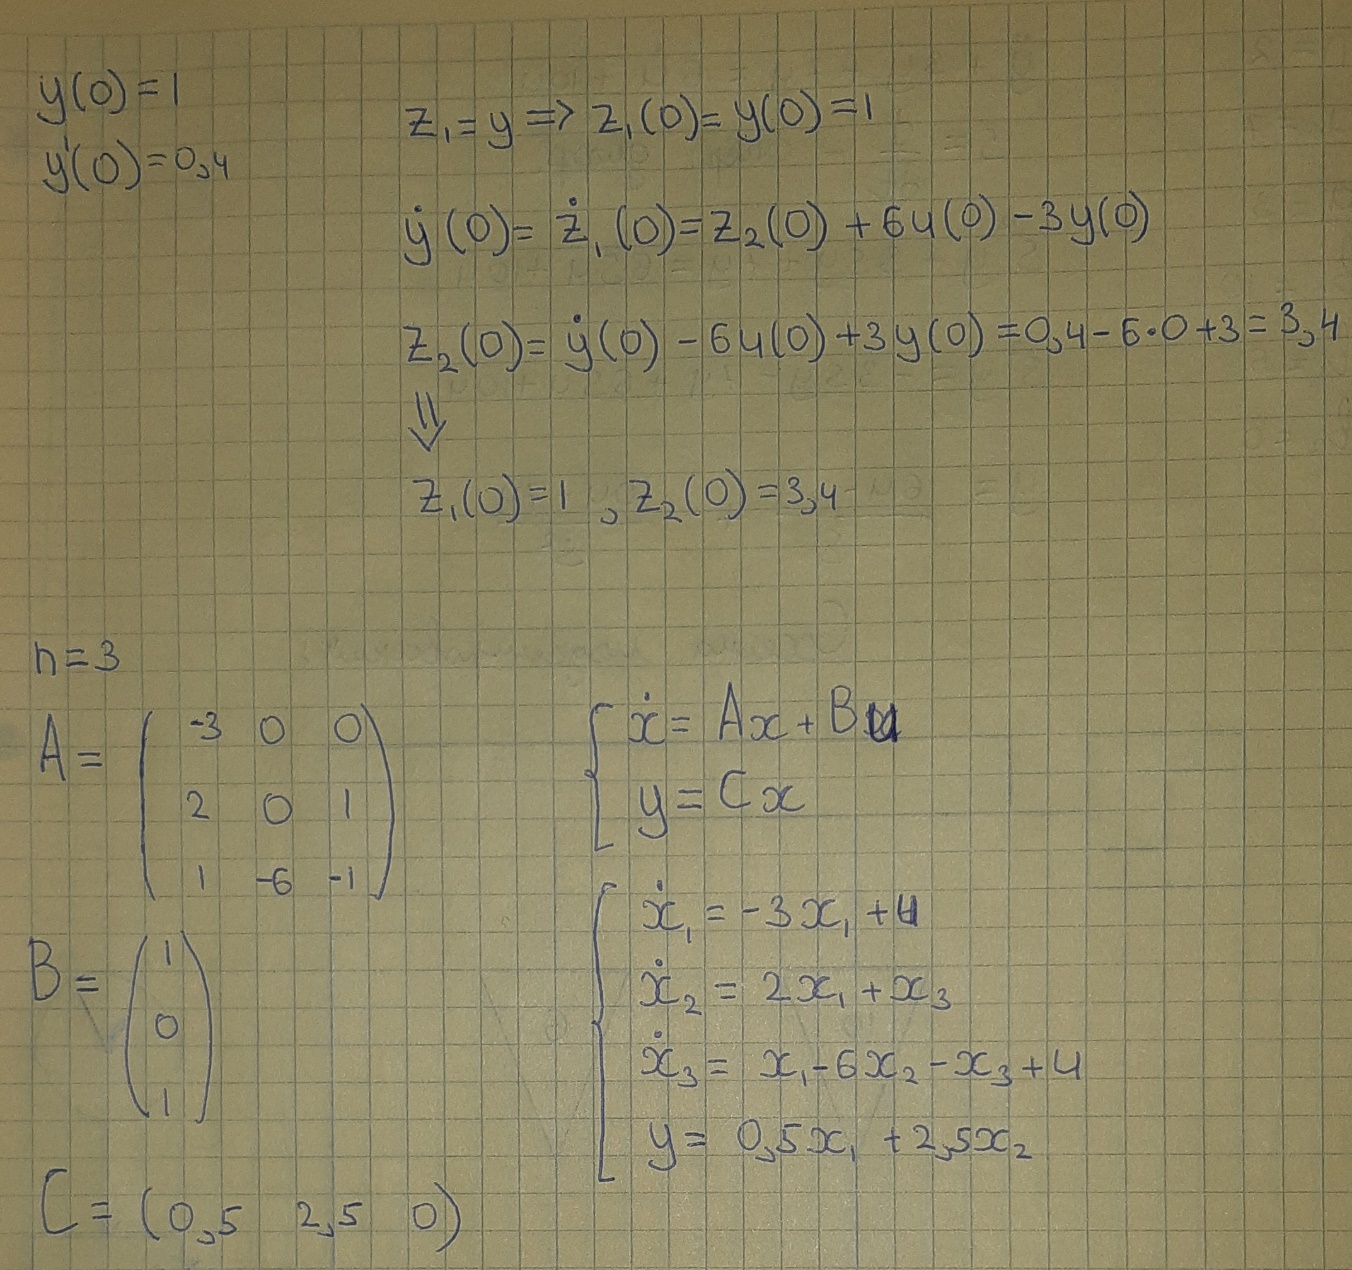 y(0)=1
y'(0)=0,4
z₁=y => z₁(0)=y(0)=1
ẏ(0)=ż₁(0)=z₂(0)+6u(0)-3y(0)
z₂(0)=ẏ(0)-6u(0)+3y(0)=0,4-6·0+3=3,4
⇓
z₁(0)=1, z₂(0)=3,4
n=3
A= ( -3 0 0
2 0 1
1 -6 -1 )
B= ( 1
0
1 )
C= (0,5 2,5 0)
{ ẋ= Ax+Bu
y=Cx
{ ẋ₁=-3x₁+u
ẋ₂= 2x₁+x₃
ẋ₃= x₁-6x₂-x₃+u
y= 0,5x₁+2,5x₂